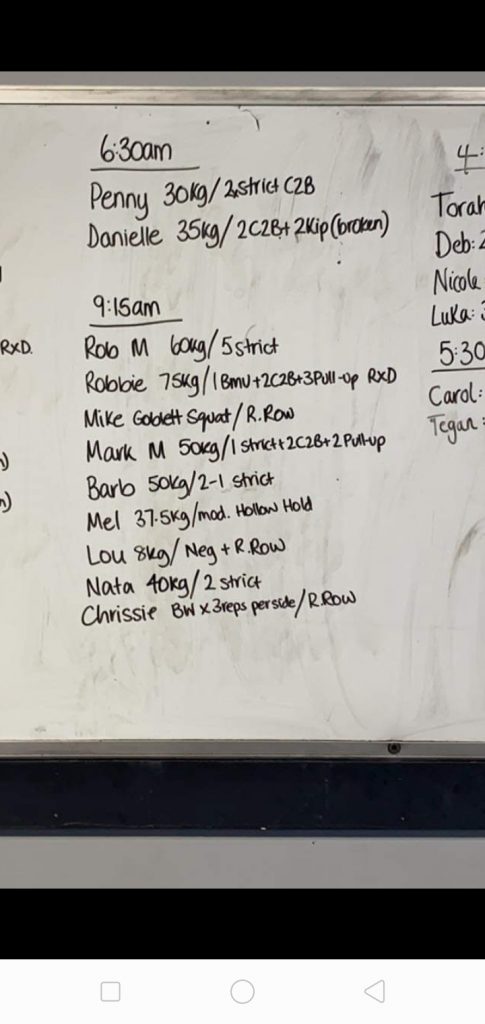 6:30am
Penny 30kg/2xstrict C2B
Danielle 35kg/2C2B+2Kip(broken)
9:15am
Rob M 60kg/5strict
Robbie 75kg/1Bmu+2C2B+3Pull-up RXD
Mike Goblett Squat/R.Row
Mark M 50kg/1strict+2C2B+2Pull-up
Barb 50kg/2-1 strict
Mel 37.5kg/mod. Hollow Hold
Lou 8kg/Neg+R.Row
Nata 40kg/2strict
Chrissie BW x3reps perside/R.Row
RXD.
4:
Torah
Deb:2
Nicole
Luka:
5:30
Carol:
Tegan: